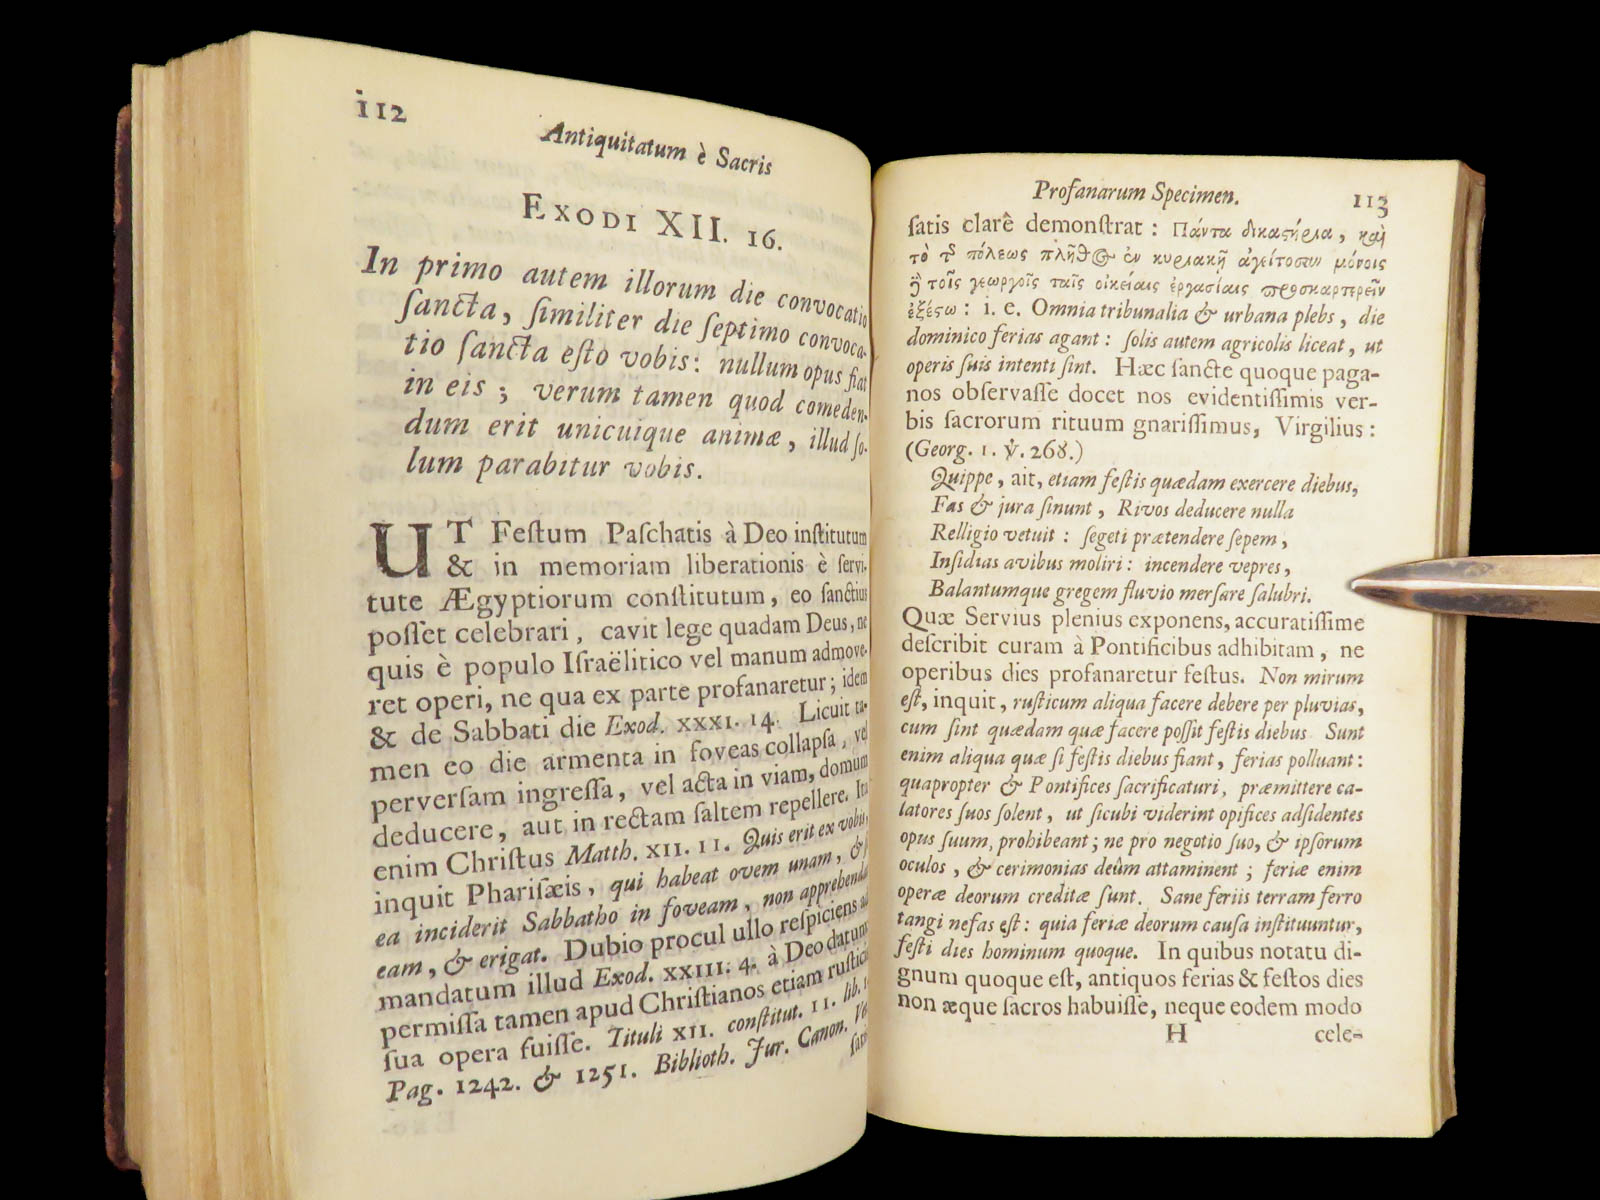 112
Antiquitatum è Sacris
EXODI XII. 16.
In primo autem illorum die convocatio
ſancta, ſimiliter die ſeptimo convoca-
tio ſancta eſto vobis: nullum opus fiat
in eis; verum tamen quod comeden-
dum erit unicuique animæ, illud ſo-
lum parabitur vobis.
UT Feſtum Paſchatis à Deo inſtitutum
& in memoriam liberationis è ſervi-
tute Ægyptiorum conſtitutum, eo ſanctius
poſſet celebrari, cavit lege quadam Deus, ne
quis è populo Iſraëlitico vel manum admove-
ret operi, ne qua ex parte profanaretur; idem
& de Sabbati die Exod. XXXI. 14. Licuit ta-
men eo die armenta in foveas collapſa, vel
perverſam ingreſſa, vel acta in viam, domum
deducere, aut in rectam ſaltem repellere. Ita
enim Chriſtus Matth. XII. 11. Quis erit ex vobis,
inquit Phariſæis, qui habeat ovem unam, &
ea inciderit Sabbatho in foveam, non apprehendat
eam, & erigat. Dubio procul ullo reſpiciens ad
mandatum illud Exod. XXIII. 4. à Deo datum
permiſſa tamen apud Chriſtianos etiam ruſtici
ſua opera fuiſſe. Tituli XII. conſtitut. 11. lib.
Pag. 1242. & 1251. Biblioth. Jur. Canon.
ſatis
Profanarum Specimen. 113
ſatis clarê demonſtrat: Πάντα δικαςήρλα, καὶ
τὸ τ πόλεως πλῆθ ἐν κυρλακῇ ἀγείτοσιν μόνοις
τοῖς γεωργοῖς ταῖς οἰκείαις ἐργασίαις προσκαρτερεῖν
ἐξέςω: i. e. Omnia tribunalia & urbana plebs, die
dominico ferias agant: ſolis autem agricolis liceat, ut
operis ſuis intenti ſint. Hæc ſancte quoque paga-
nos obſervaſſe docet nos evidentiſſimis ver-
bis ſacrorum rituum gnariſſimus, Virgilius:
(Georg. 1. ℣. 268.)
Quippe, ait, etiam feſtis quædam exercere diebus,
Fas & jura ſinunt, Rivos deducere nulla
Relligio vetuit: ſegeti prætendere ſepem,
Inſidias avibus moliri: incendere vepres,
Balantumque gregem fluvio merſare ſalubri.
Quæ Servius plenius exponens, accuratiſſime
deſcribit curam à Pontificibus adhibitam, ne
operibus dies profanaretur feſtus. Non mirum
eſt, inquit, ruſticum aliqua facere debere per pluvias,
cum ſint quædam quæ facere poſſit feſtis diebus Sunt
enim aliqua quæ ſi feſtis diebus fiant, ferias polluant:
quapropter & Pontifices ſacrificaturi, præmittere ca-
latores ſuos ſolent, ut ſicubi viderint opifices adſidentes
opus ſuum, prohibeant; ne pro negotio ſuo, & ipſorum
oculos, & cerimonias deûm attaminent; feriæ enim
operæ deorum creditæ ſunt. Sane feriis terram ferro
tangi nefas eſt: quia feriæ deorum cauſa inſtituuntur,
feſti dies hominum quoque. In quibus notatu di-
gnum quoque eſt, antiquos ferias & feſtos dies
non æque ſacros habuiſſe, neque eodem modo
H cele-